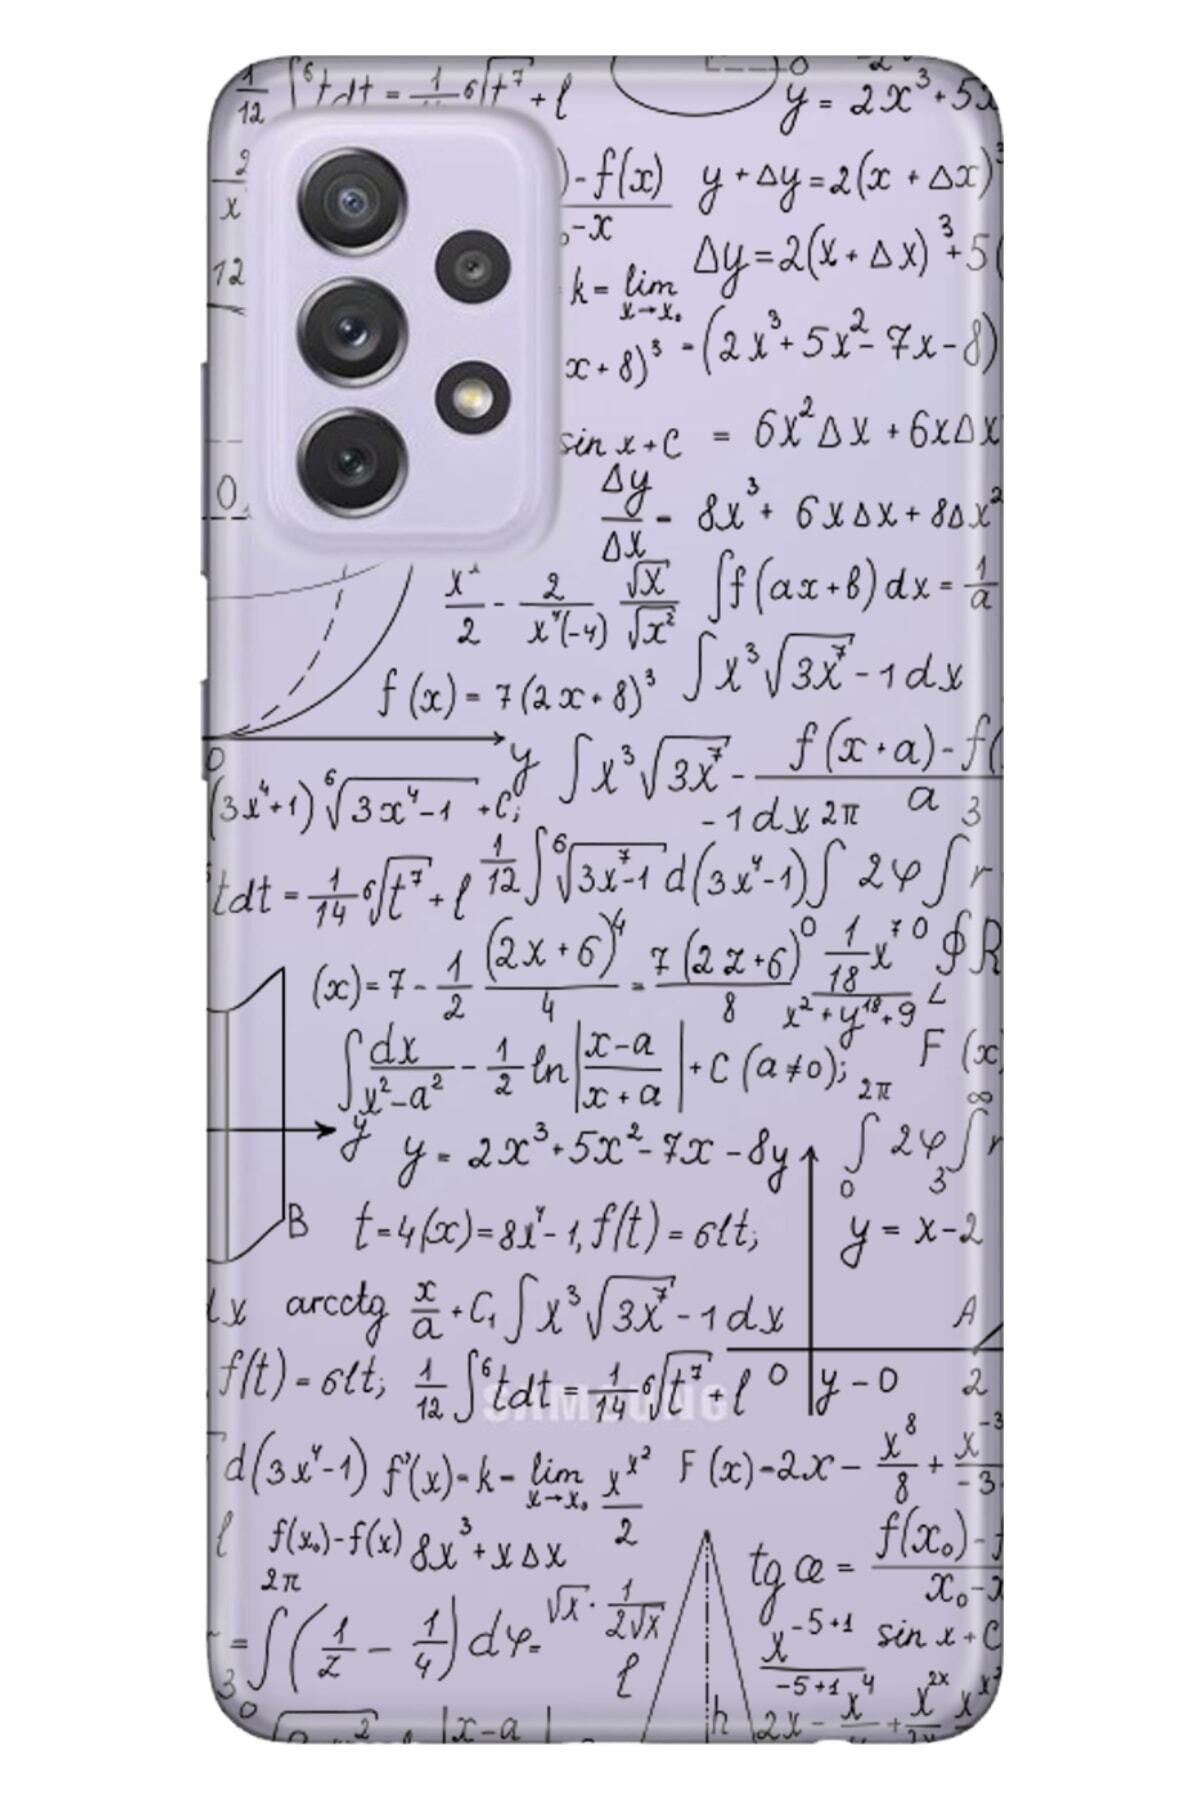 1/12 ∫⁶tdt = 1/ ⁶√t⁷ + l
y = 2x³+5x
2/x
)-f(x) y + Δy = 2(x + Δx)³
-x
12
Δy = 2(x + Δx)³+5(
k = lim x→x₀
x + 8)³ - (2x³ + 5x² - 7x - 8)
sin x + C = 6x²Δx + 6xΔx
0
Δy/Δx - 8x³ + 6xΔx + 8Δx²
x²/2 - 2/x⁴(-4) √x/√x² ∫f(ax+b)dx = 1/a
f(x) = 7(2x + 8)³ ∫x³√3x⁷ - 1dx
0 y ∫x³√3x⁷ - f(x+a)-f(/a
-1dx 2π 3
(3x⁴+1) ⁶√3x⁴-1 + C;
tdt = 1/14 ⁶√t⁷ + l 1/12 ∫⁶√3x⁷-1 d(3x⁴-1)∫ 2φ ∫r
(x) = 7 - 1/2 (2x+6)⁴/4 = 7(2z+6)⁰/8 1/18 x⁷⁰ ∮R
x² + y¹⁸ + 9 L
∫dx/x²-a² - 1/2 ln|x-a/x+a| + C (a≠0); F (x
y y = 2x³+5x²-7x-8y
2π ∞
∫ 2φ ∫r
0 3
B t=4(x)=8x⁴-1, f(t)=6lt; y = x-2
lx arcctg x/a + C₁ ∫x³√3x⁷ - 1dx A
f(t) = 6lt; 1/12 ∫⁶tdt = 1/14 ⁶√t⁷ + l 0 y-0 2
SAMSUNG
d(3x⁴-1) f'(x)=k= lim x→x₀ x^x²/2 F (x)-2x - x⁸/8 + x⁻³/-3
l f(x₀)-f(x) 8x³+xΔx tg æ = f(x₀)-f/x₀-x
2π
= ∫(1/z - 1/4)dφ= √x · 1/2√x x⁻⁵⁺¹/-5+1 sin x + C
3 l
0 2 |x-a | h 2x - x⁴ + x²ˣ xˣ